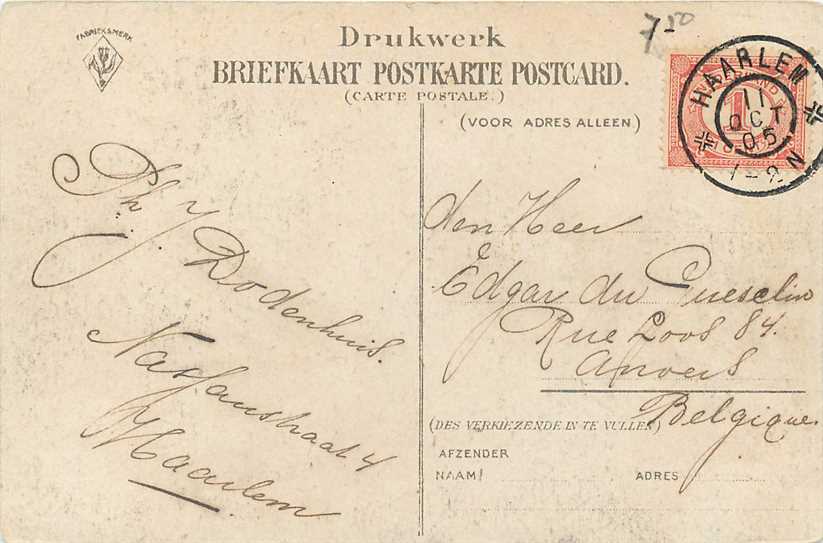 FABRIEKSMERK
Drukwerk
BRIEFKAART POSTKARTE POSTCARD.
(CARTE POSTALE.)
(VOOR ADRES ALLEEN)
7-50
HAARLEM
11
OCT
05
1-2 N
Ph. J. Dodenhuis.
Nassaustraat 4
Haarlem
den Heer
Edgar du Guesclin
Rue Loos 84.
Anvers
Belgique.
(DES VERKIEZENDE IN TE VULLEN)
AFZENDER
NAAM: ADRES